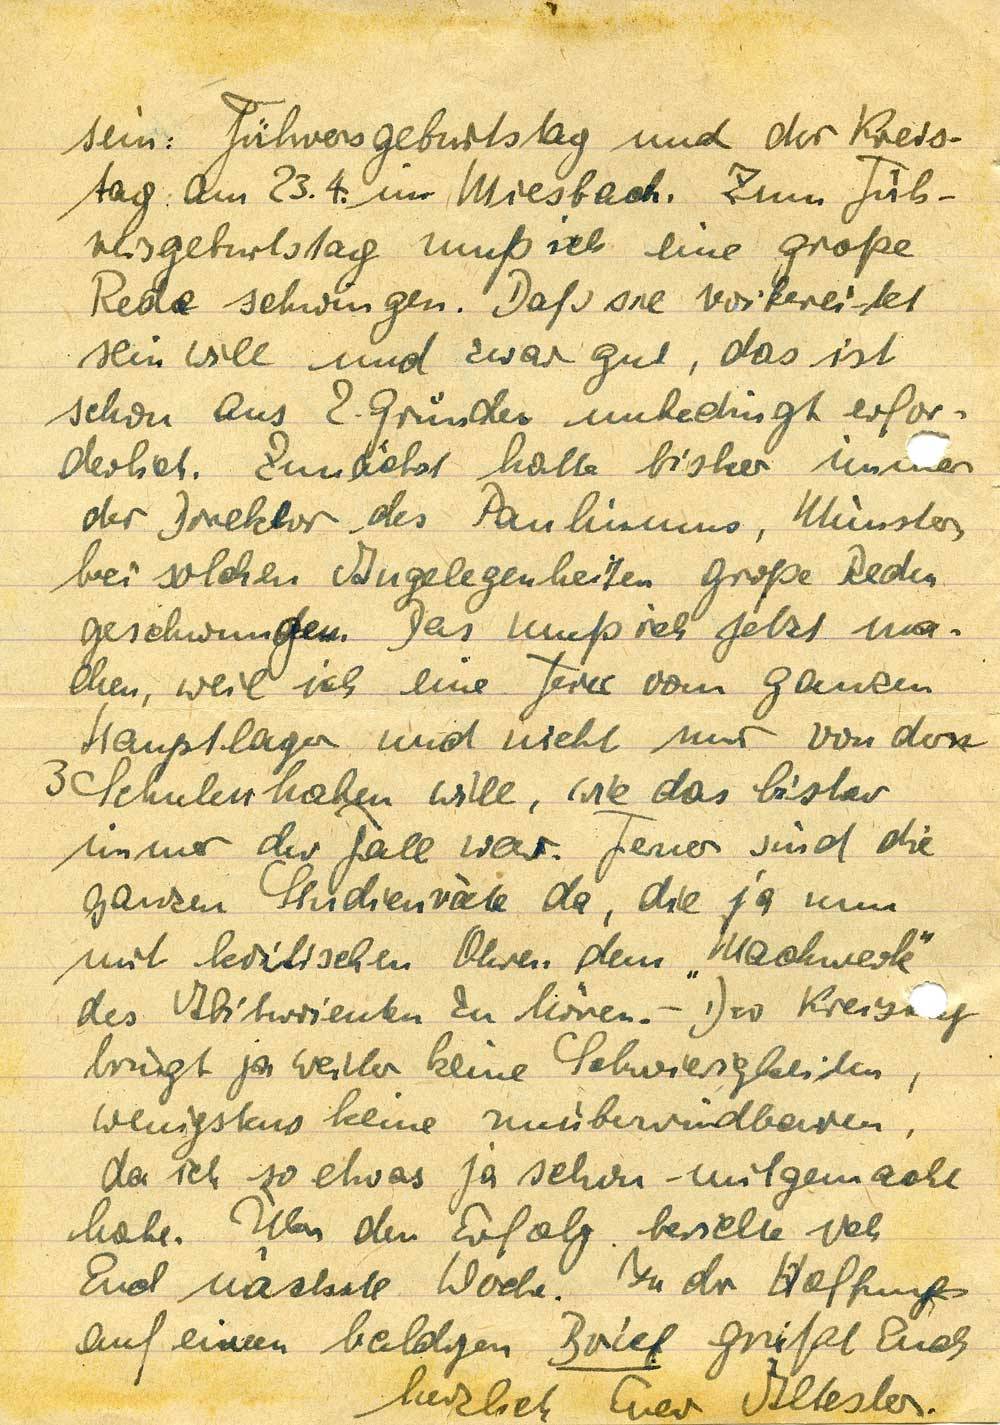 sein: Führersgeburtstag und der Kreis-
tag am 23.4. in Miesbach. Zum Füh-
rersgeburtstag muß ich eine große
Rede schwingen. Daß sie vorbereitet
sein will und zwar gut, das ist
schon aus 2 Gründen unbedingt erfor-
derlich. Zunächst hatte bisher immer
der Direktor des Paulinums, Münster,
bei solchen Angelegenheiten große Reden
geschwungen. Das muß ich jetzt ma-
chen, weil ich eine Feier vom ganzen
Hauptlager und nicht nur von den
3 Schulen haben will, wie das bisher
immer der Fall war. Ferner sind die
ganzen Studienräte da, die ja nun
mit kritischen Ohren dem „Machwerk"
des Abiturienten zu hören. – Der Kreistag
bringt ja weiter keine Schwierigkeiten,
wenigstens keine unüberwindbaren,
da ich so etwas ja schon mitgemacht
habe. Über den Erfolg berichte ich
Euch nächste Woche. In der Hoffnung
auf einen baldigen Brief grüßt Euch
herzlich Euer Ältester.